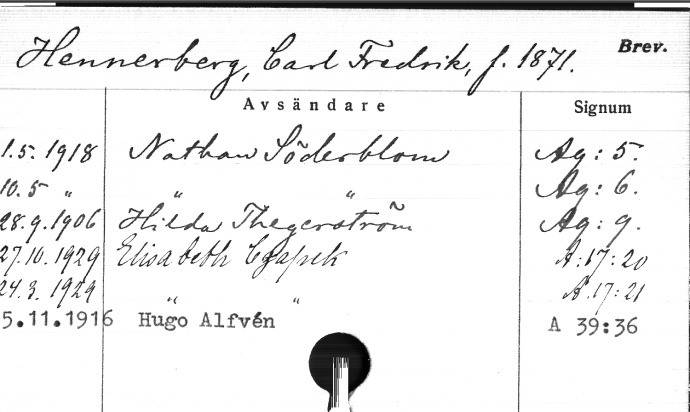 Hennerberg, Carl Fredrik, f. 1871. Brev.
Avsändare Signum
1.5. 1918 Nathan Söderblom Ag: 5.
10.5 " " " Ag: 6.
28.9.1906 Hilda Thegerström Ag: 9.
27.10.1929 Elisabeth Czapek A:17:20
24.3.1929 " " A.17:21
5.11.1916 Hugo Alfvén A 39:36